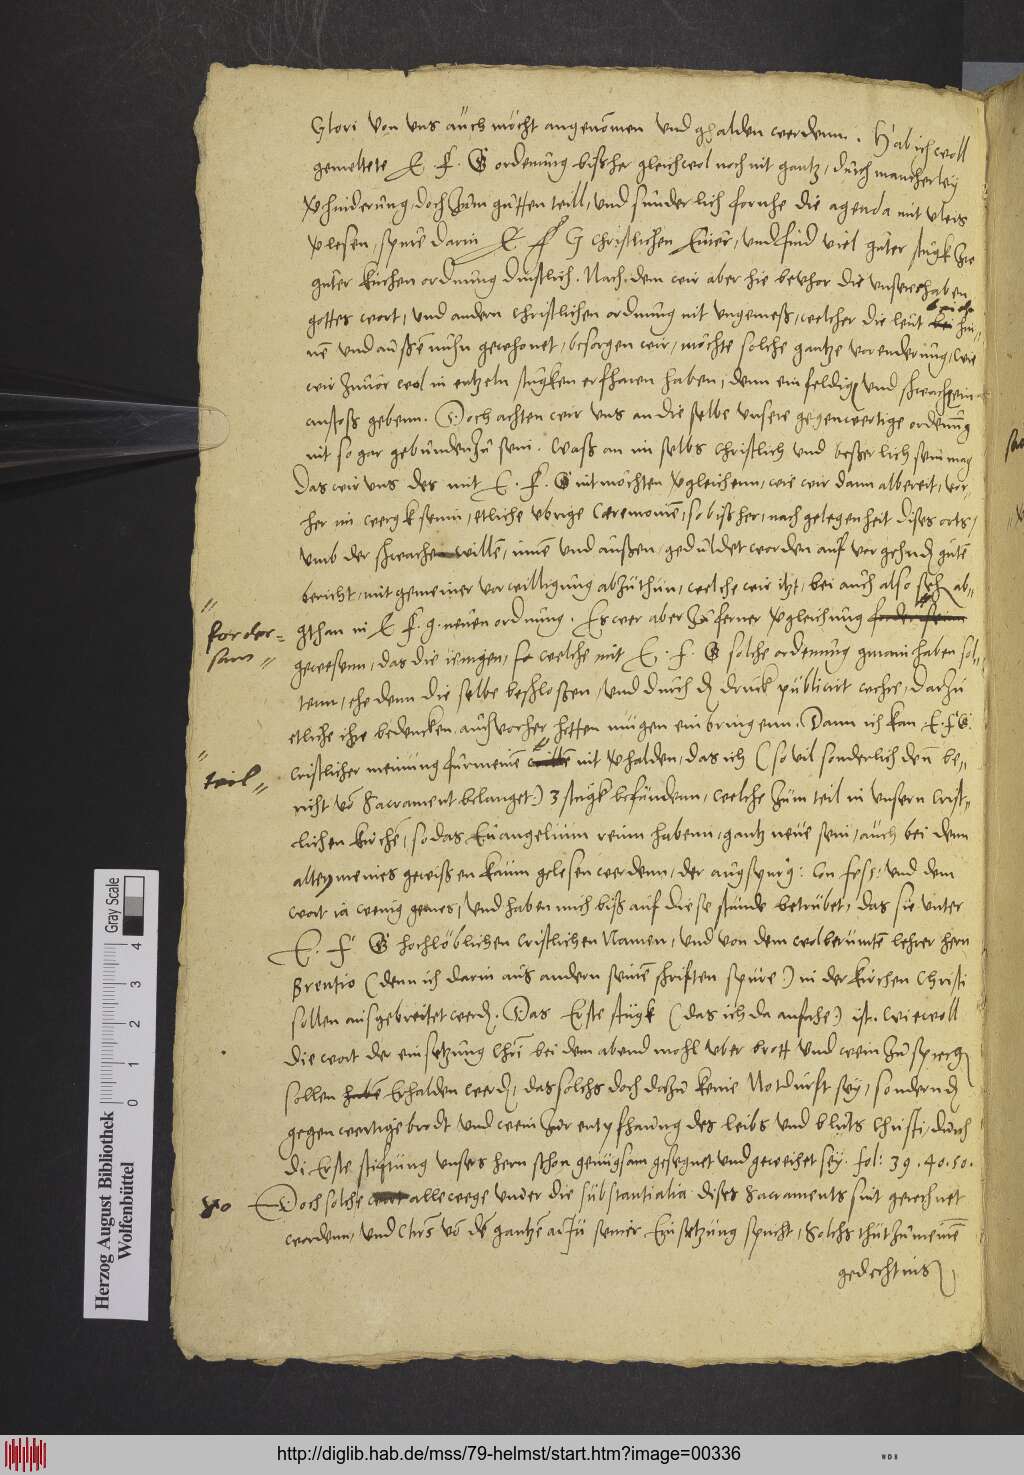 Glori von uns auch möcht angenomen und ghalden werdenn. Hab ich woll
gemeltete E. F. G ordenung bißher gleichwol noch nit gantz, durch mancherley
vhinderung, doch zum gutten teill, und sunderlich fornhe die agenda mit vleis
vlesen, spure darin E F G christlichen Euier, und find viel guter stugk zu
guter kirchen ordnung dinstlich. Nach dem wir aber hie bevhor die unsere haben
gottes wort, und andern christlichen ordnung nit ungemeß, welcher die leut
nē und außen nuhn gewhonet, besorgen wir, möchte solche gantze vorenderung, wie
wir zuuor wol in entzeln stugken erfharen haben, denn einfeldigē und schwachen ein
anstoß gebenn. Doch achten wir uns an die selbe unsere gegenwertige ordenūg
nit so gar gebunden zu sein. Waß an im selbs christlich und beßerlich sein mag
Das wir uns des mit E. F. G nit möchten vgleichenn, wie wir dann albereit, vor-
her im wergk seinn, etliche ubrige Ceremonien, so bißher, nach gelegenheit dises orts,
umb der schwachen willē, innē und außen, geduldet worden auf vorgehendē gutē
bericht, mit gemeiner vorwilligung abzuthun, welche wir itzt, bei auch also sehē ab-
gthan in E F. g. neuen ordnung. Es wer aber zu ferner vgleichung
fordersam
gewesenn, das die ienigen, welche mit E. F. G solche ordenung gmain haben sol-
tenn, ehe denn die selbe beschloßen, und durch dē druck publicirt weher, darzu
etliche ihre bedencken auch vorher hetten mugen einbringenn. Dann ich kan E F G.
cristlicher meinung fur meinē teil nit vhalden, das ich (so vil sonderlich den be-
richt vō Sacrament belanget) 3 stugk befundenn, welche zum teil in unsern crist-
lichen kirchē, so das Euangelium reinn habenn, gantz neue sein, auch bei denn
alten meines gewißen kaum gelesen werdenn, der augspurg: Confess: und dem
wort ia wenig gemes, und haben mich biß auf diese stunde betrubet, das sie unter
E. F G hochlöblichen cristlichen Namen, und von dem wolberumtē lehrer hern
Brentio (denn ich darin aus andern seinē schriften spure) in der kirchen Christi
sollen ausgebreitet werdē. Das Erste stugk (das ich da anfahe) ist. Wiewoll
die wort der einsetzung Chri bei dem abendmohl uber brott und wein zu sprechē
sollen Erhalden werdē, das solchs doch dahin keine Notdurft sey, sondern dē
gegenwertige brodt und wein zur entpfhaung des leibs und bluts Christi, durch
di Erste stiftung unsers hern schon genugsam gesegnet und geweihet sey. fol: 39. 40. 50.
Doch solche allewege under die substantialia dises Sacraments sint gerechnet
wordenn, und Chrs vō dē gantzē actu seiner Einsetzung spricht, Solchs thut zu meinē
gedechtnis
Herzog August Bibliothek
Wolfenbüttel
0 1 2 3 4
Gray Scale
http://diglib.hab.de/mss/79-helmst/start.htm?image=00336